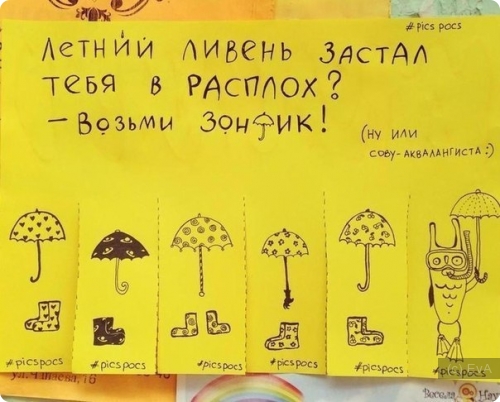 #pics pocs
ЛЕТНИЙ ЛИВЕНЬ ЗАСТАЛ
ТЕБЯ В РАСПЛОХ?
– ВОЗЬМИ ЗОНТИК!
(НУ ИЛИ
СОВУ-АКВАЛАНГИСТА:)
#picspocs
#picspocs
#picspocs
#picspocs
#picspocs
#picspocs
Весела